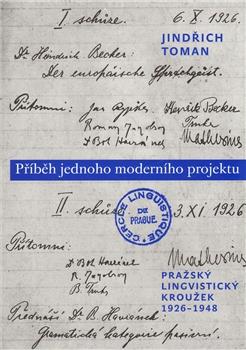 I schůze. 6. X. 1926.
JINDŘICH
TOMAN
Dr. Heinrich Becker:
Der europäische Sprachgeist.
Přítomni: Jan Rypka, Henrik Becker
Trnka
Dr Boh Havránek Mathesius
Příběh jednoho moderního projektu
II schůze 3. XI 1926
CERCLE LINGUISTIQUE
DE
PRAGUE.
Přítomni: Mathesius
Dr Boh Havránek
R. Jakobson
B. Trnka
PRAŽSKÝ
LINGVISTICKÝ
KROUŽEK
1926–1948
Přednáší Dr. B. Havránek:
Gramatická kategorie pasivní.